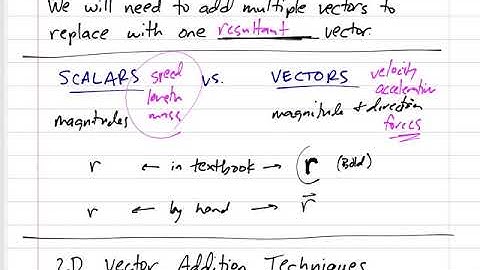 We will need to add multiple vectors to
replace with one resultant vector.
SCALARS speed vs. VECTORS velocity
length acceleration
magnitudes mass magnitude & direction
forces
r ← in textbook → r (Bold)
r ← by hand → r⃗
2D Vector Addition Techniques